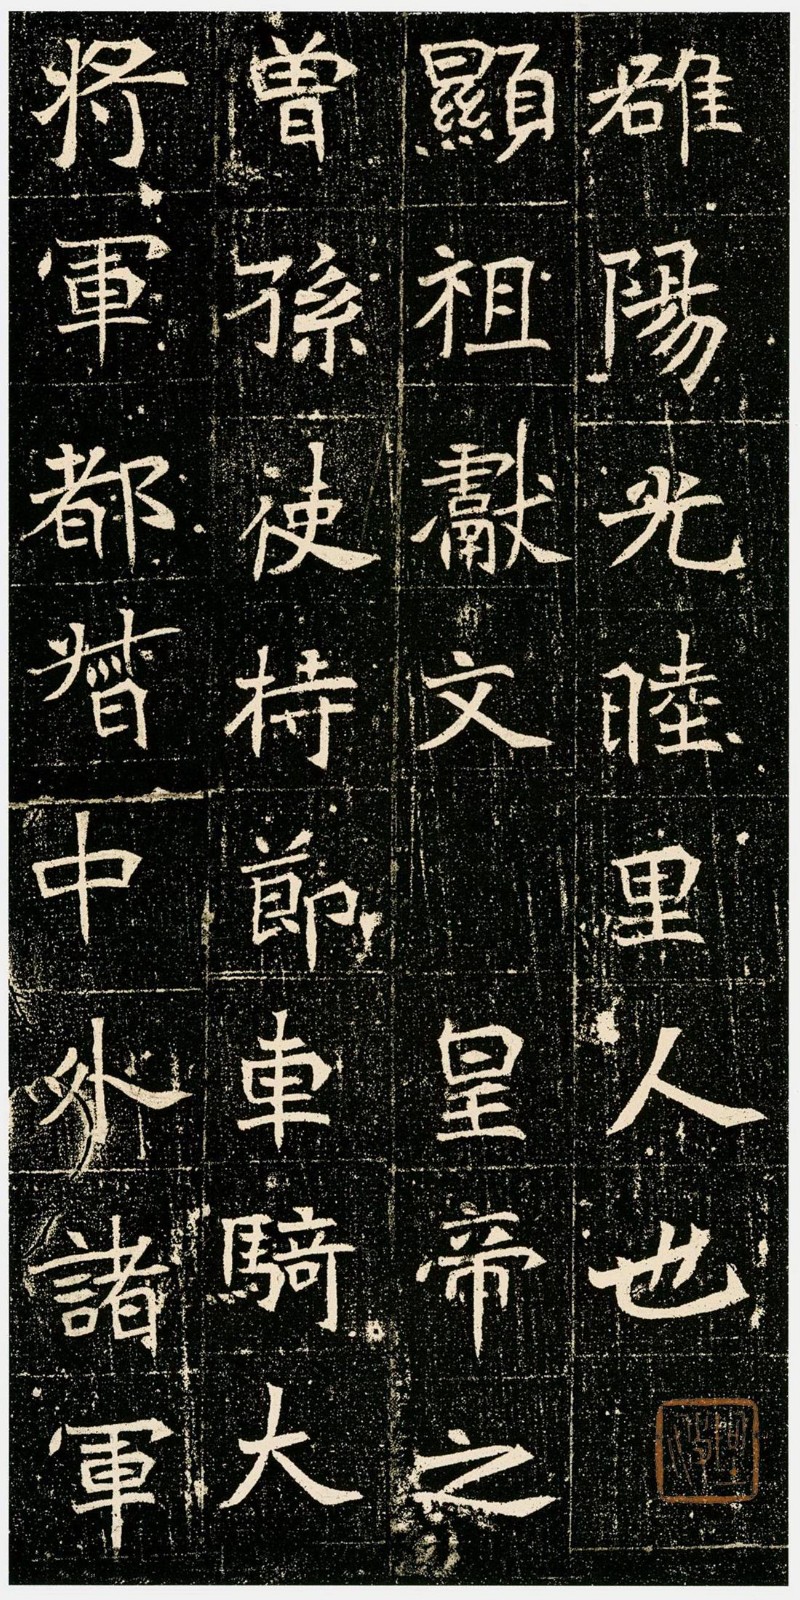 雒陽光睦里人也
顯祖獻文 皇帝之
曾孫使持節車騎大
將軍都督中外諸軍